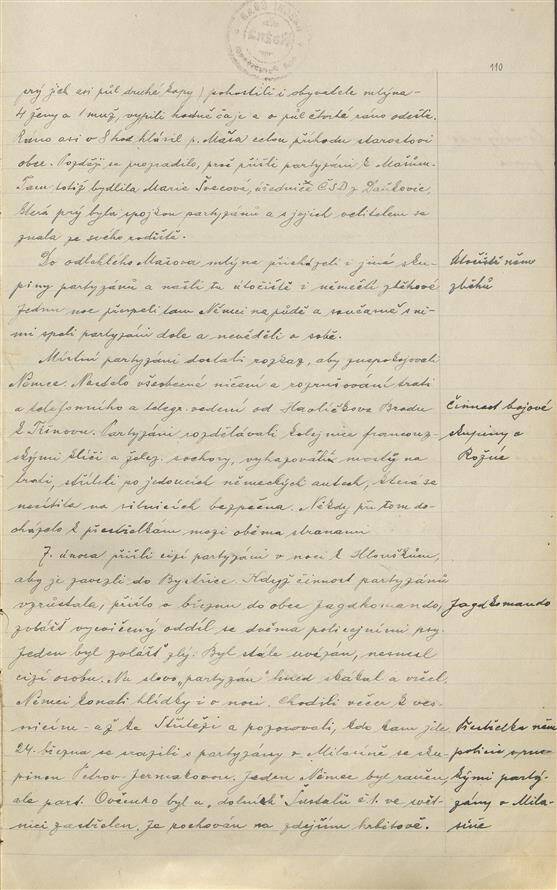 110
prý jak asi půl druhé kopy) pohostili i obyvatele mlýna -
4 ženy a 1 muž, vypili hodně čaje a o půl čtvrté ráno odešli.
Ráno asi v 8 hod hlásil p. Máša celou příhodu starostovi
obce. Později se prozradilo, proč přišli partyzáni k Mášům.
Tam totiž bydlila Marie Švecová, úřednice ČSD z Daňkovic,
která prý byla spojkou partyzánů a s jejich velitelem se
znala ze svého rodiště.
Do odlehlého Mášova mlýna přicházeli i jiné sku-
piny partyzánů a našli tu útočiště i němečtí zběhové
Jednu noc přespali tam Němci na půdě a současně s ni-
mi spali partyzáni dole a nevěděli o sobě.
Útočiště něm.
zběhů
Místní partyzáni dostali rozkaz, aby znepokojovali
Němce. Nastalo všeobecné ničení a rozrušování trati
a telefonního a telegr. vedení od Havlíčkova Brodu
k Tišnovu. Partyzáni rozdělávali kolejnice francouz-
skými klíči a želez. sochory, vyhazovali mosty na
trati, stříleli po jedoucích německých autech, která se
necítila na silnicích bezpečna. Někdy při tom do-
cházelo k přestřelkám mezi oběma stranami
Činnost bojové
skupiny v
Rožné
7. února přišli cizí partyzáni v noci k Hlouškům,
aby je zavezli do Bystřice. Když činnost partyzánů
vzrůstala, přišlo v březnu do obce Jagdkomando,
zvlášť vycvičený oddíl se dvěma policejními psy.
Jeden byl zvlášť zlý. Byl stále uvázán, nesnesl
cizí osobu. Na slovo "partyzán" hned skákal a vrčel.
Němci konali hlídky i v noci. Chodili večer k ves-
nicím - až ke Stříteži a pozorovali, kdo kam jde
24. března se srazili s partyzány v Milasíně se sku-
pinou Petrov-Jermakovou. Jeden Němec byl raněn,
ale part. Ovčenko byl u "dolních" Šustalů č. 1. ve svět-
nici zastřelen. Je pochován na zdejším hřbitově.
Jagdkomando
Přestřelka něm
policie s rus-
kými party-
zány v Mila-
síně